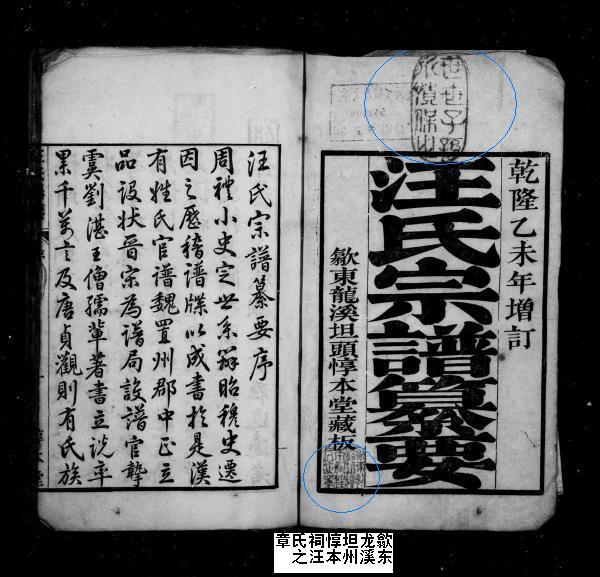 乾隆乙未年增訂
汪氏宗譜纂要
歙東龍溪坦頭惇本堂藏板
世世子孫
汪氏宗譜纂要序
周禮小史定世系辨昭穆史遷
因之歷稽譜牒以成書於是漢
有姓氏官譜魏置州郡中正立
品設狀晉宋為譜局設譜官摯
虞劉湛王僧孺輩著書立說率
累千萬言及唐貞觀則有氏族
歙东
龙溪
坦州
惇本
祠汪
氏之
章